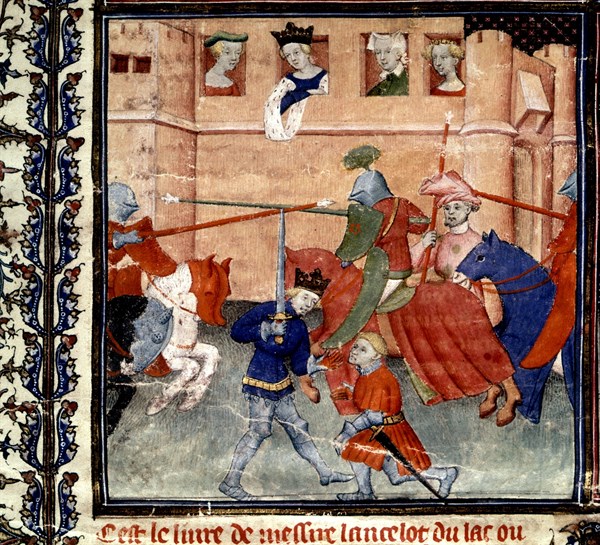 Cest le liure de messire lancelot du lac ou